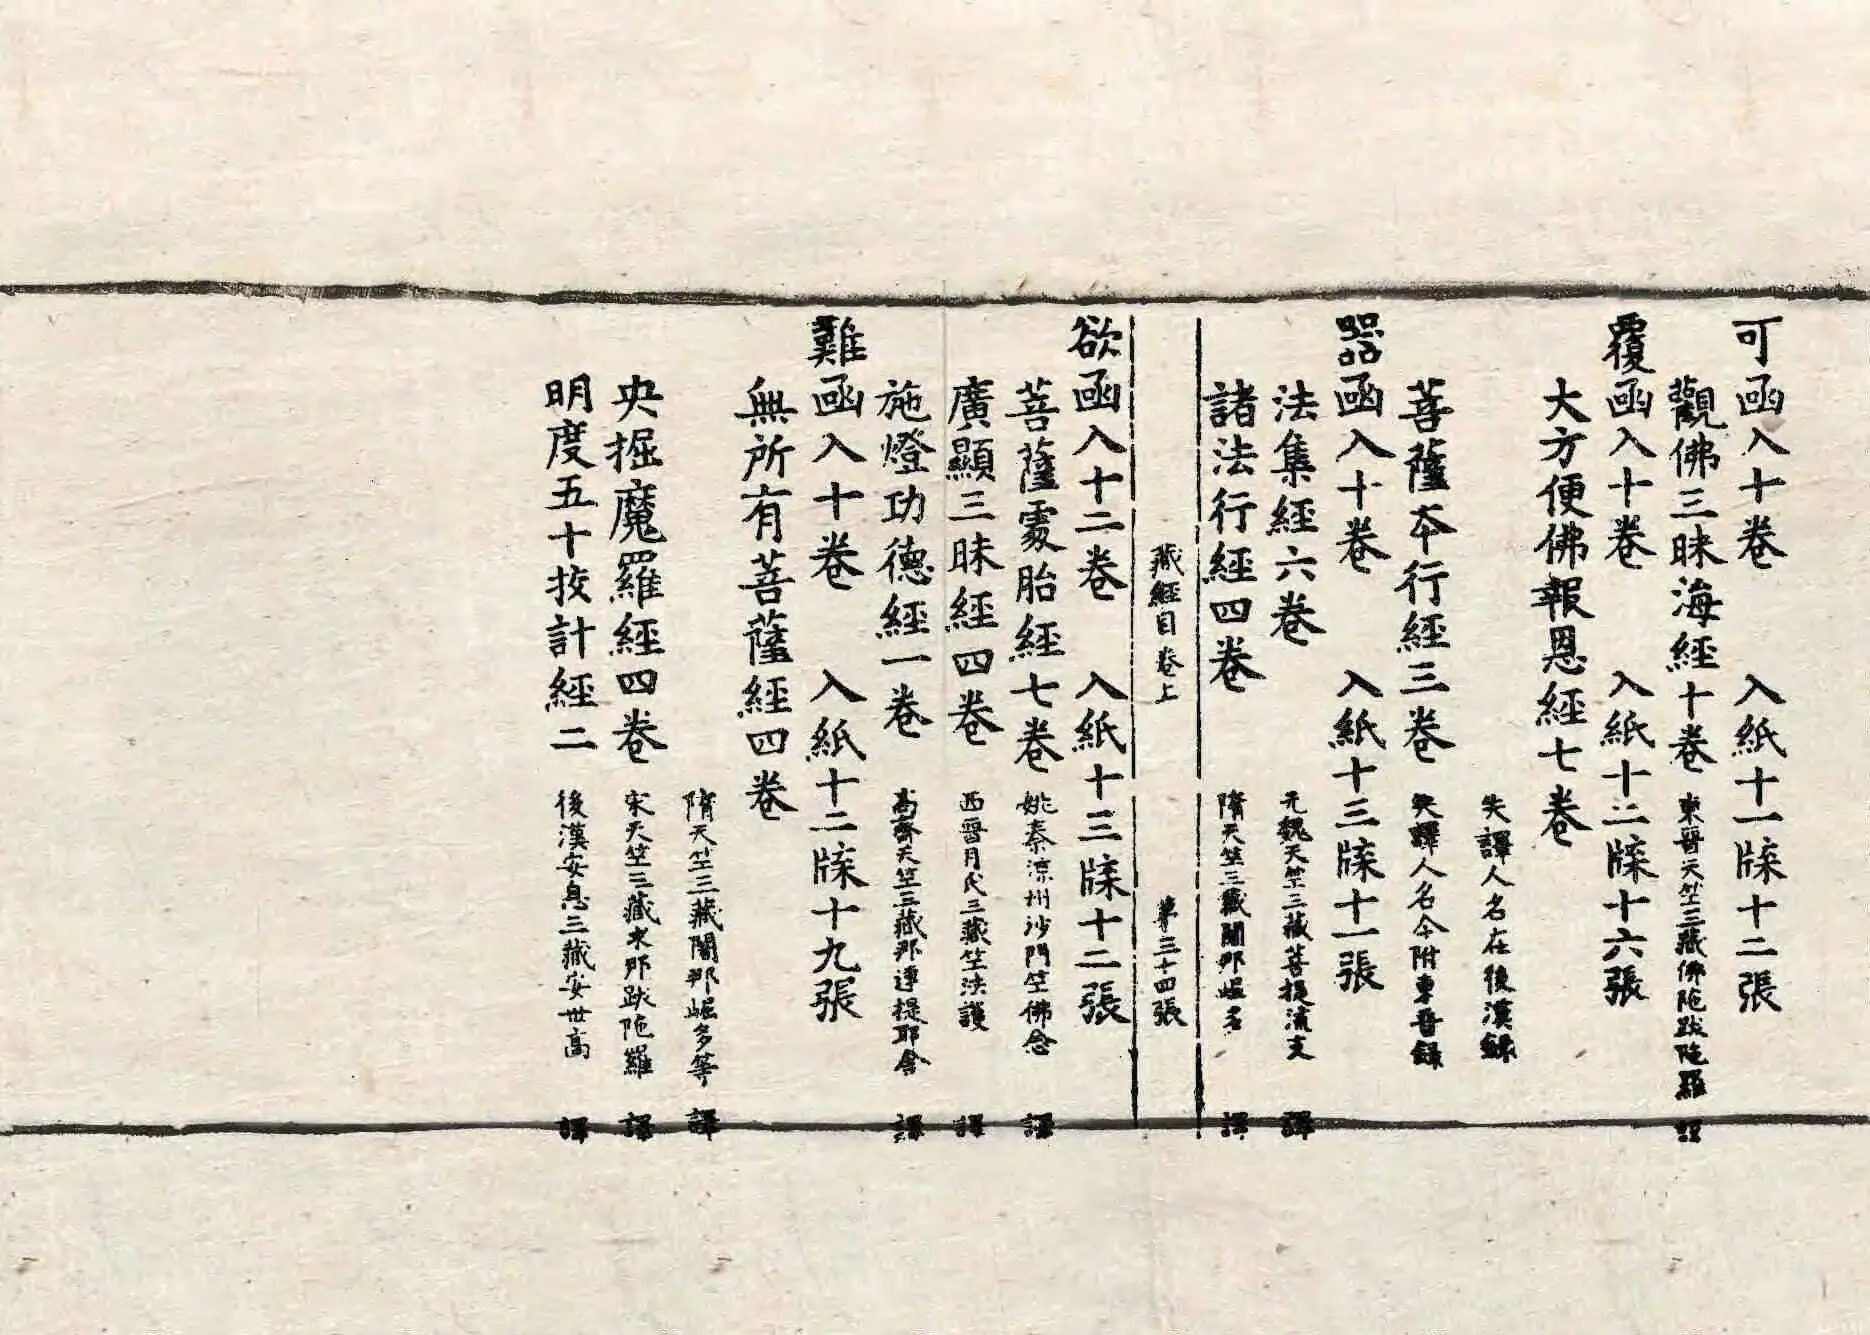 可函入十卷　入紙十一牒十二張
觀佛三昧海經十卷　東晉天竺三藏佛陁跋陁羅　譯
覆函入十卷　入紙十二牒十六張
大方便佛報恩經七卷
失譯人名在後漢錄
菩薩本行經三卷　失譯人名今附東晉錄
器函入十卷　入紙十三牒十一張
法集經六卷　元魏天竺三藏菩提流支　譯
諸法行經四卷　隋天竺三藏闍那崛多　譯
藏經目卷上　第三十四張
欲函入十二卷　入紙十三牒十二張
菩薩處胎經七卷　姚秦涼州沙門竺佛念　譯
廣顯三昧經四卷　西晉月氏三藏竺法護　譯
施燈功德經一卷　高齊天竺三藏那連提耶舍　譯
難函入十卷　入紙十二牒十九張
無所有菩薩經四卷
隋天竺三藏闍那崛多等　譯
央掘魔羅經四卷　宋天竺三藏求那跋陁羅　譯
明度五十挍計經二　後漢安息三藏安世高　譯